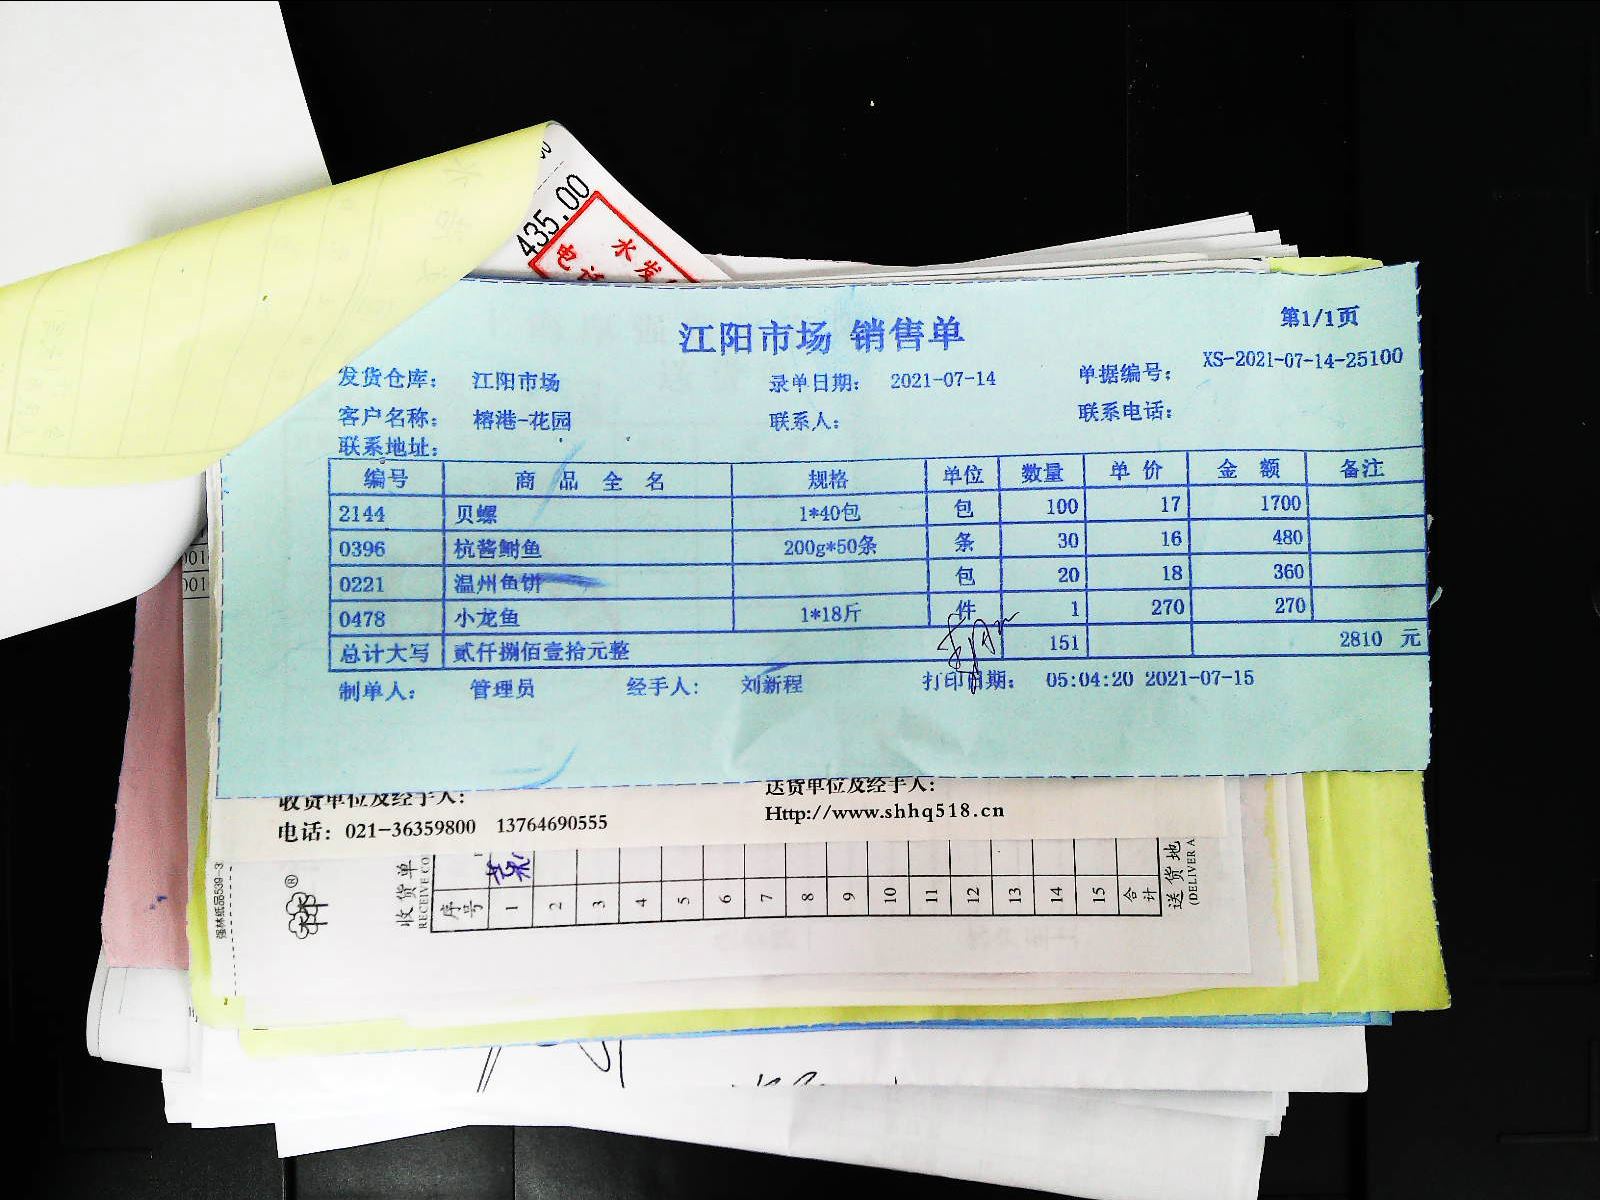 435.00
水发
电
江阳市场 销售单
第1/1页
发货仓库: 江阳市场 录单日期: 2021-07-14 单据编号: XS-2021-07-14-25100
客户名称: 榕港-花园 联系人: 联系电话:
联系地址:
编号 商品全名 规格 单位 数量 单价 金额 备注
2144 贝螺 1*40包 包 100 17 1700
0396 杭酱鲋鱼 200g*50条 条 30 16 480
0221 温州鱼饼 包 20 18 360
0478 小龙鱼 1*18斤 件 1 270 270
总计大写 贰仟捌佰壹拾元整 151 2810 元
制单人: 管理员 经手人: 刘新程 打印日期: 05:04:20 2021-07-15
收货单位及经手人: 送货单位及经手人:
电话: 021-36359800 13764690555 Http://www.shhq518.cn
强林纸品539-3
收货单
RECEIVE CO
序号 1 2 3 4 5 6 7 8 9 10 11 12 13 14 15 合计
送货地
(DELIVER A